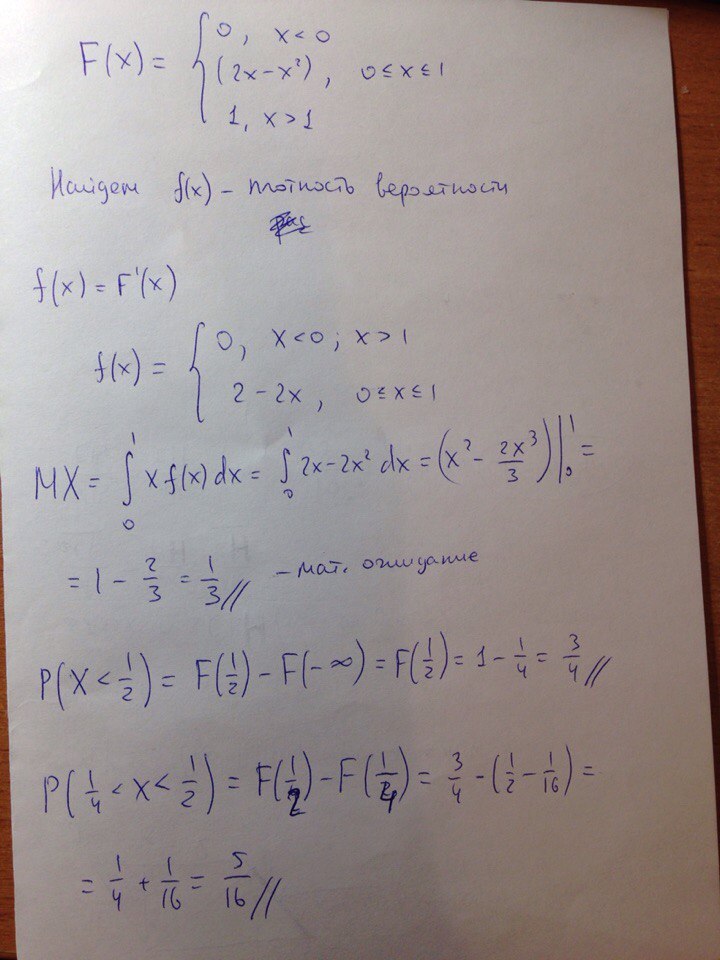 F(x) = { 0, x < 0
(2x-x²), 0 ≤ x ≤ 1
1, x > 1
Найдем f(x) - плотность вероятности
f(x) = F'(x)
f(x) = { 0, x < 0; x > 1
2 - 2x, 0 ≤ x ≤ 1
MX = ∫₀¹ x f(x) dx = ∫₀¹ 2x - 2x² dx = (x² - 2x³/3)|₀¹ =
= 1 - 2/3 = 1/3 // - мат. ожидание
P(X < 1/2) = F(1/2) - F(-∞) = F(1/2) = 1 - 1/4 = 3/4 //
P(1/4 < x < 1/2) = F(1/2) - F(1/4) = 3/4 - (1/2 - 1/16) =
= 1/4 + 1/16 = 5/16 //